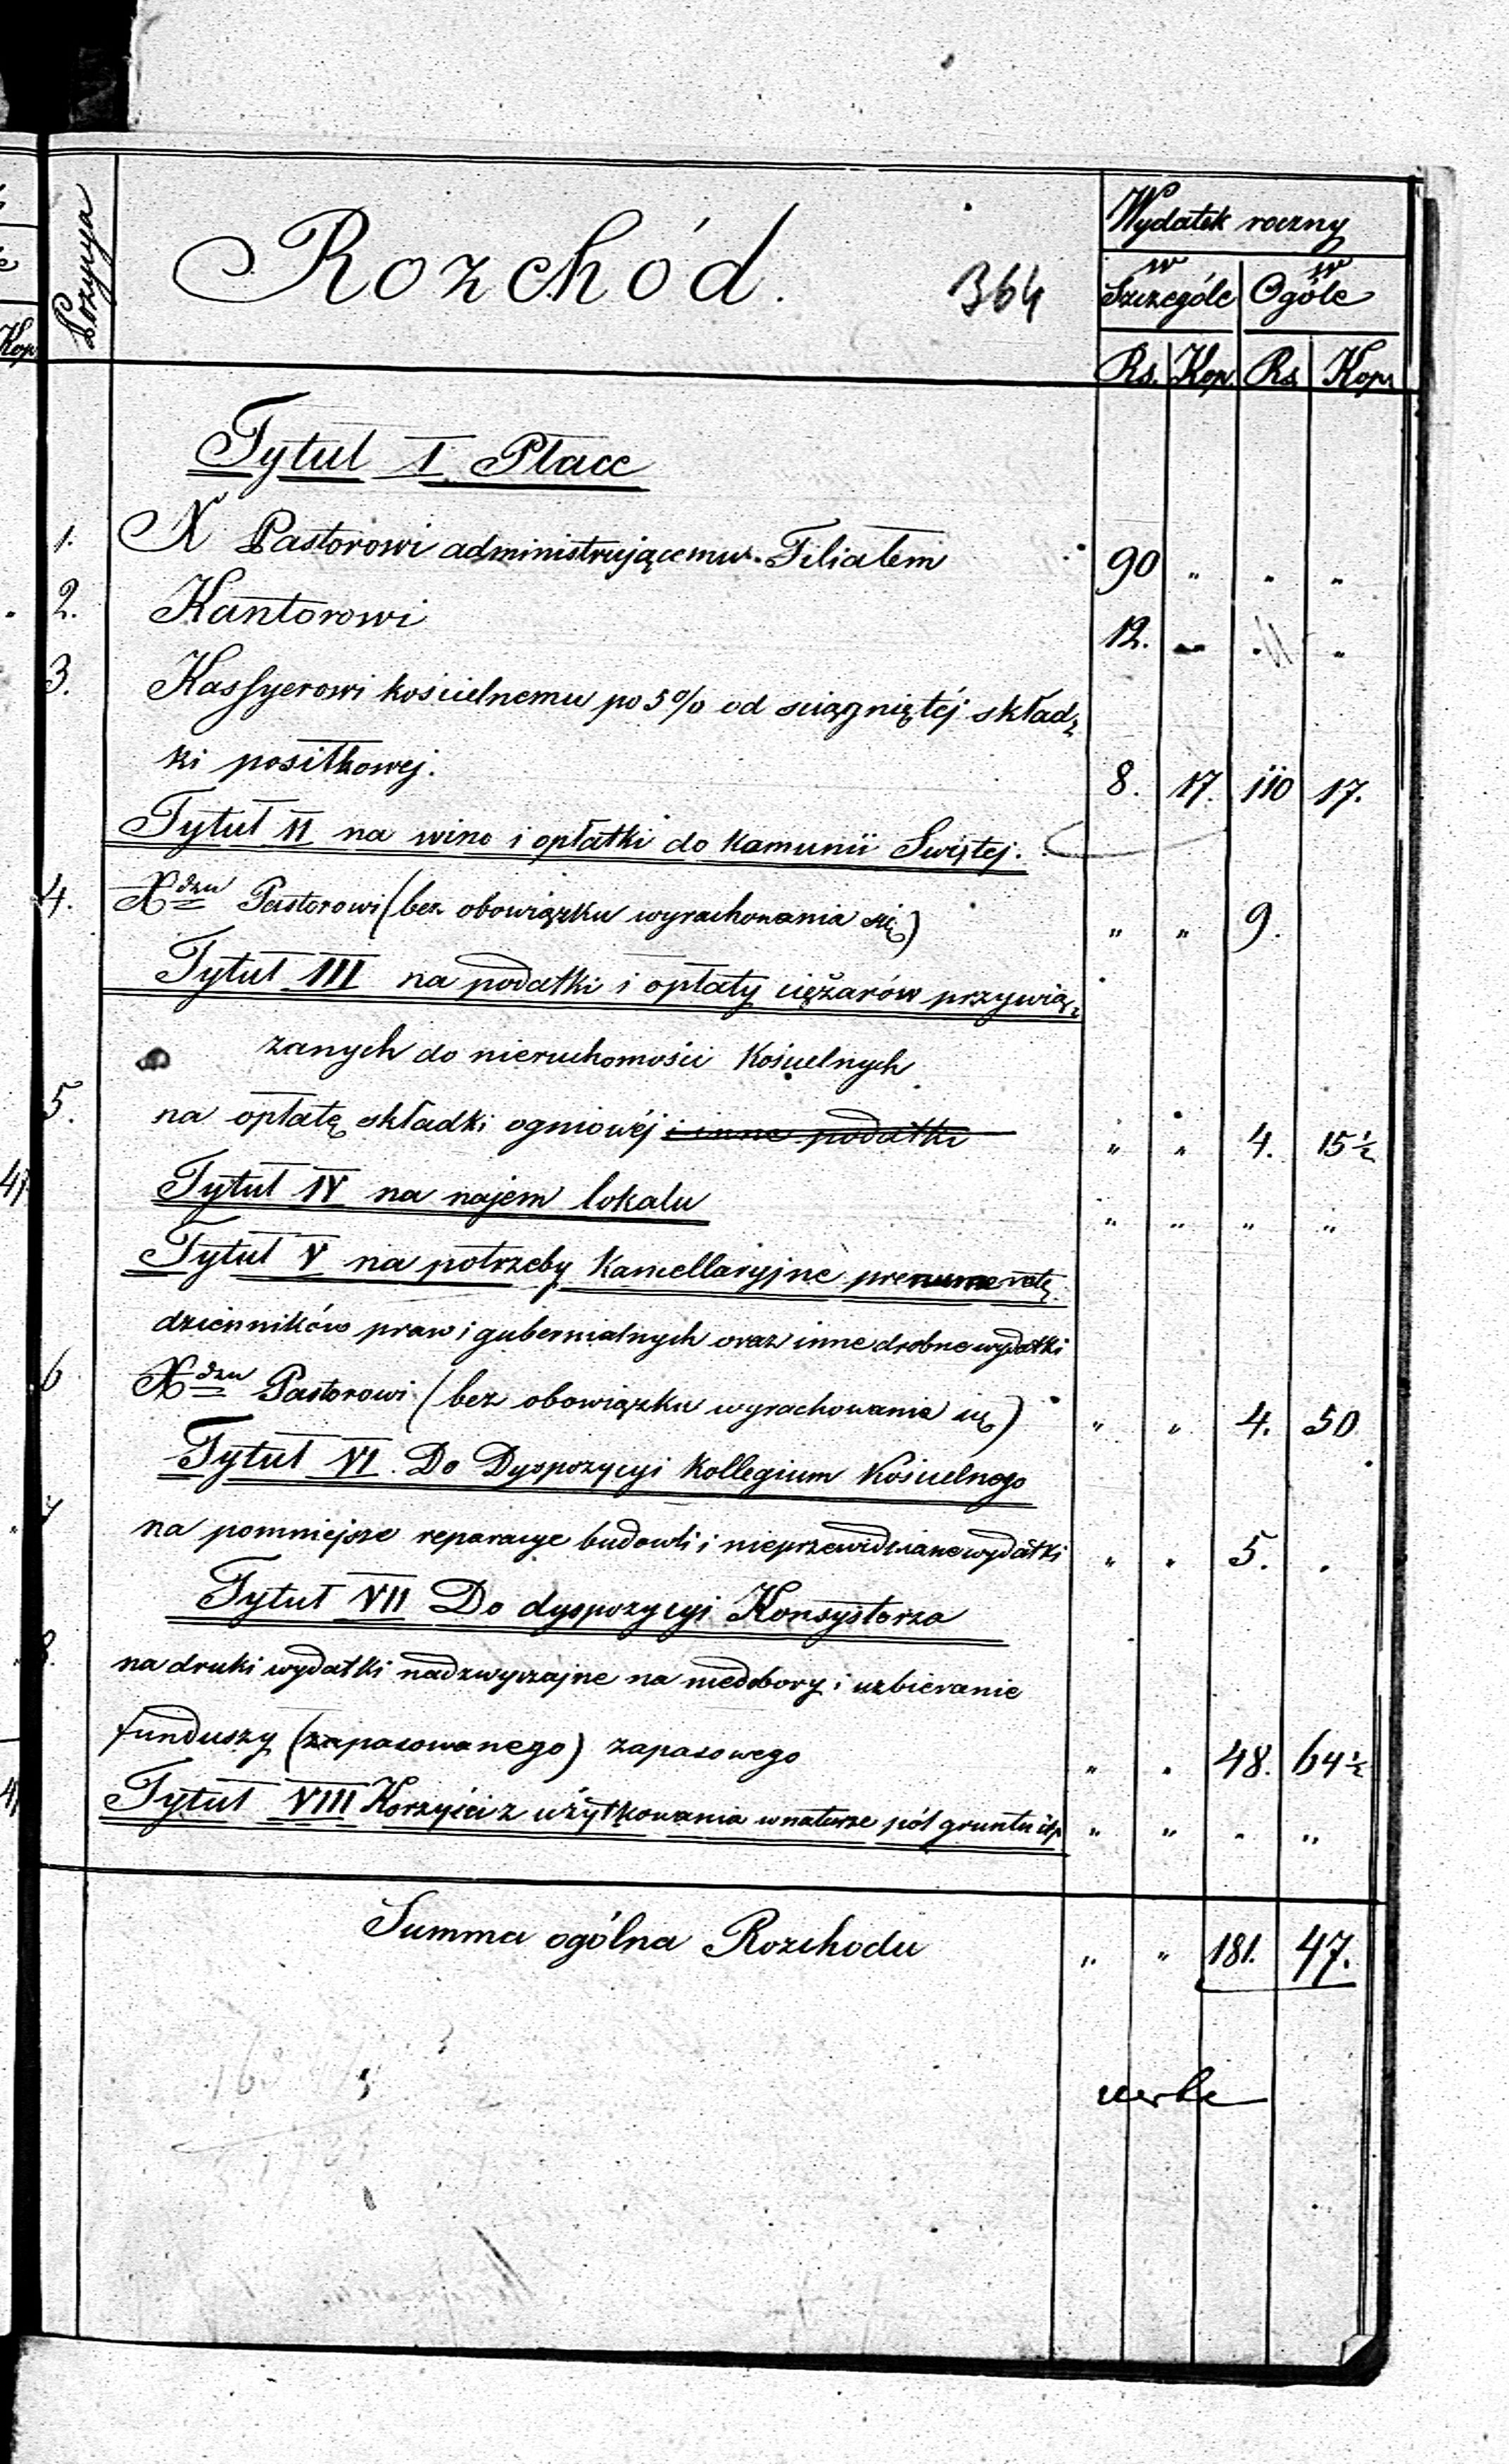 Wydatek roczny
Pozycya Rozchód. 364
w Szczególe w Ogóle
Kop Rs. Kop. Rs. Kop.
Tytuł I Płace
1. X Pastorowi administrującemu Filiałem 90 " " "
2. Kantorowi 12. " " "
3. Kassyerowi kościelnemu po 5% od sciągniętéj skład=
ki positkowej. 8. 17. 110 17.
Tytuł II na wino i opłatki do Kamunii Swiętej.
4. Xdzu Pastorowi (bez obowiązku wyrachowania się) " " 9.
Tytuł III na podatki i opłaty ciężarów przywią=
zanych do nieruchomości Kościelnych
5. na opłatę składki ogniowéj i inne podatki " " 4. 15½
Tytuł IV na najem lokalu " " " "
Tytuł V na potrzeby Kancellaryjne prenumeratę
dzienników praw i gubernialnych oraz inne drobne wydatki
6 Xdzu Pastorowi (bez obowiązku wyrachowania się) " " 4. 50
Tytuł VI. Do Dyspozycyi Kollegium Kościelnego
7 na pomniejsze reparacye budowli i nieprzewidziane wydatki " " 5. "
Tytuł VII Do dyspozycyi Konsystorza
8. na druki wydatki nadzwyczajne na niedobory i uzbieranie
funduszy (zapasowanego) zapasowego " " 48. 64½
Tytuł VIII Korzyści z użytkowania w naturze pól gruntu itp " " " "
Summa ogólna Rozchodu " " 181. 47.